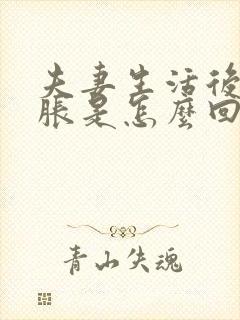 夫妻生活後
脹是怎麼回
青山失魂